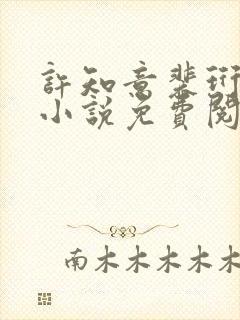 許知意裴珩
小說免費閱
南木木木木木